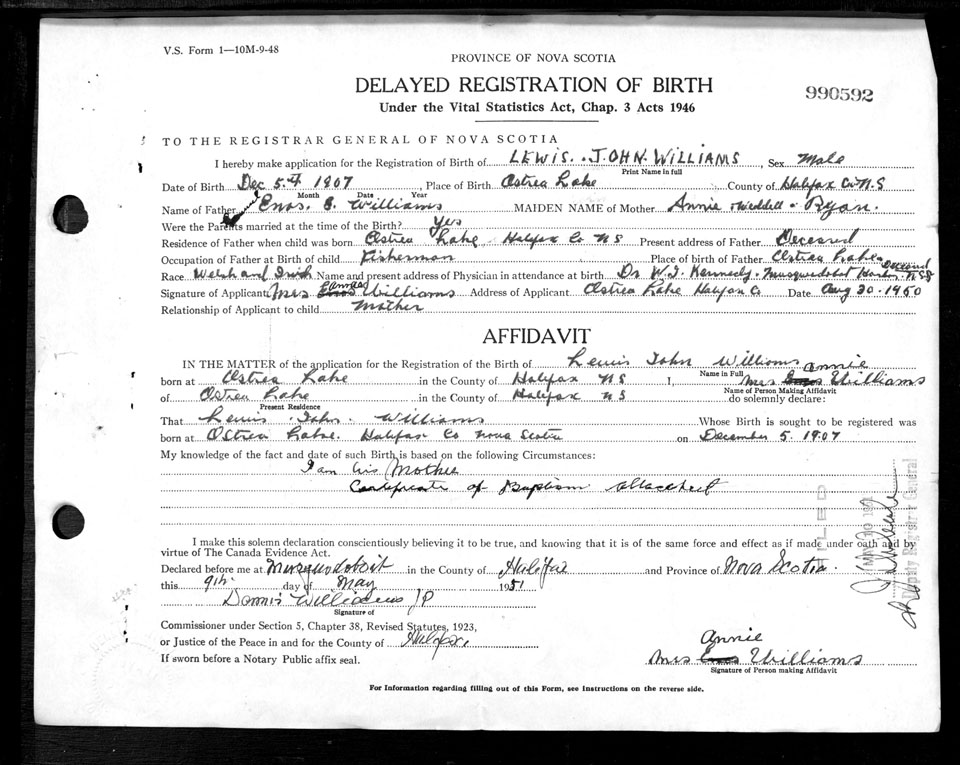 V.S. Form 1—10M-9-48
PROVINCE OF NOVA SCOTIA
DELAYED REGISTRATION OF BIRTH
990592
Under the Vital Statistics Act, Chap. 3 Acts 1946
TO THE REGISTRAR GENERAL OF NOVA SCOTIA
I hereby make application for the Registration of Birth of LEWIS. JOHN. WILLIAMS, Sex Male
Print Name in full
Date of Birth Dec 5th 1907, Place of Birth Ostrea Lake County of Halifax Co N.S
Month Date Year
Name of Father Enos. Williams MAIDEN NAME of Mother Annie Ryan.
Were the Parents married at the time of the Birth? Yes
Residence of Father when child was born Ostrea Lake Halifax Co NS Present address of Father Deceased
Occupation of Father at Birth of child Fisherman Place of birth of Father Ostrea Lake
Race Welsh and Irish Name and present address of Physician in attendance at birth Dr W.J. Kennedy. Musquodoboit Harbor N.S. Deceased
Signature of Applicant Mrs Annie Williams Address of Applicant Ostrea Lake Halifax Co Date Aug 30. 1950
Relationship of Applicant to child Mother
AFFIDAVIT
IN THE MATTER of the application for the Registration of the Birth of Lewis John Williams
Name in Full
born at Ostrea Lake in the County of Halifax NS I, Mrs Annie Williams
Name of Person Making Affidavit
of Ostrea Lake in the County of Halifax NS do solemnly declare:
Present Residence
That Lewis John Williams Whose Birth is sought to be registered was
born at Ostrea Lake. Halifax Co Nova Scotia on December 5. 1907
My knowledge of the fact and date of such Birth is based on the following Circumstances:
I am his Mother
Certificate of Baptism attached
I make this solemn declaration conscientiously believing it to be true, and knowing that it is of the same force and effect as if made under oath and by
virtue of The Canada Evidence Act.
Declared before me at Musquodoboit in the County of Halifax and Province of Nova Scotia.
this 9th. day of May 1951
Williams JP
Signature of
Commissioner under Section 5, Chapter 38, Revised Statutes, 1923,
or Justice of the Peace in and for the County of Halifax.
If sworn before a Notary Public affix seal.
Mrs Annie Williams
Signature of Person making Affidavit
FILED
MAY 10 1951
Deputy Registrar General
For Information regarding filling out of this Form, see Instructions on the reverse side.